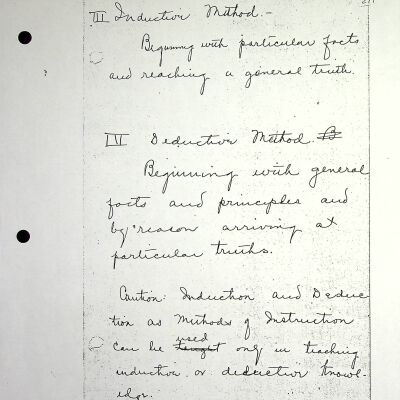 III Inductive Method.-
Beginning with particular facts
and reaching a general truth.
IV Deductive Method.
Beginning with general
facts and principles and
by reason arriving at
particular truths.
Caution: Induction and Deduc
tion as Methods of Instruction
used
can be taught only in teaching
inductive or deductive knowl-
edge.